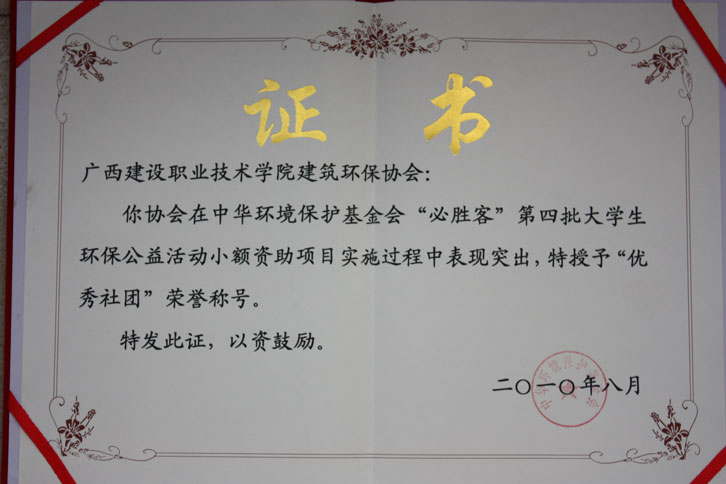 证书
广西建设职业技术学院建筑环保协会：
你协会在中华环境保护基金会“必胜客”第四批大学生
环保公益活动小额资助项目实施过程中表现突出，特授予“优
秀社团”荣誉称号。
特发此证，以资鼓励。
二〇一〇年八月
中华环境保护基金会